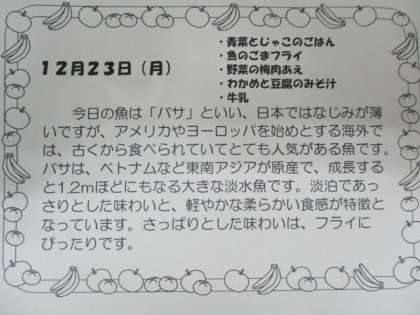 ・青菜とじゃこのごはん
・魚のごまフライ
12月23日(月)
・野菜の梅肉あえ
・わかめと豆腐のみそ汁
・牛乳
今日の魚は「バサ」といい、日本ではなじみが薄
いですが、アメリカやヨーロッパを始めとする海外で
は、古くから食べられていてとても人気がある魚です。
バサは、ベトナムなど東南アジアが原産で、成長する
と1.2mほどにもなる大きな淡水魚です。淡泊であっ
さりとした味わいと、軽やかな柔らかい食感が特徴と
なっています。さっぱりとした味わいは、フライに
ぴったりです。